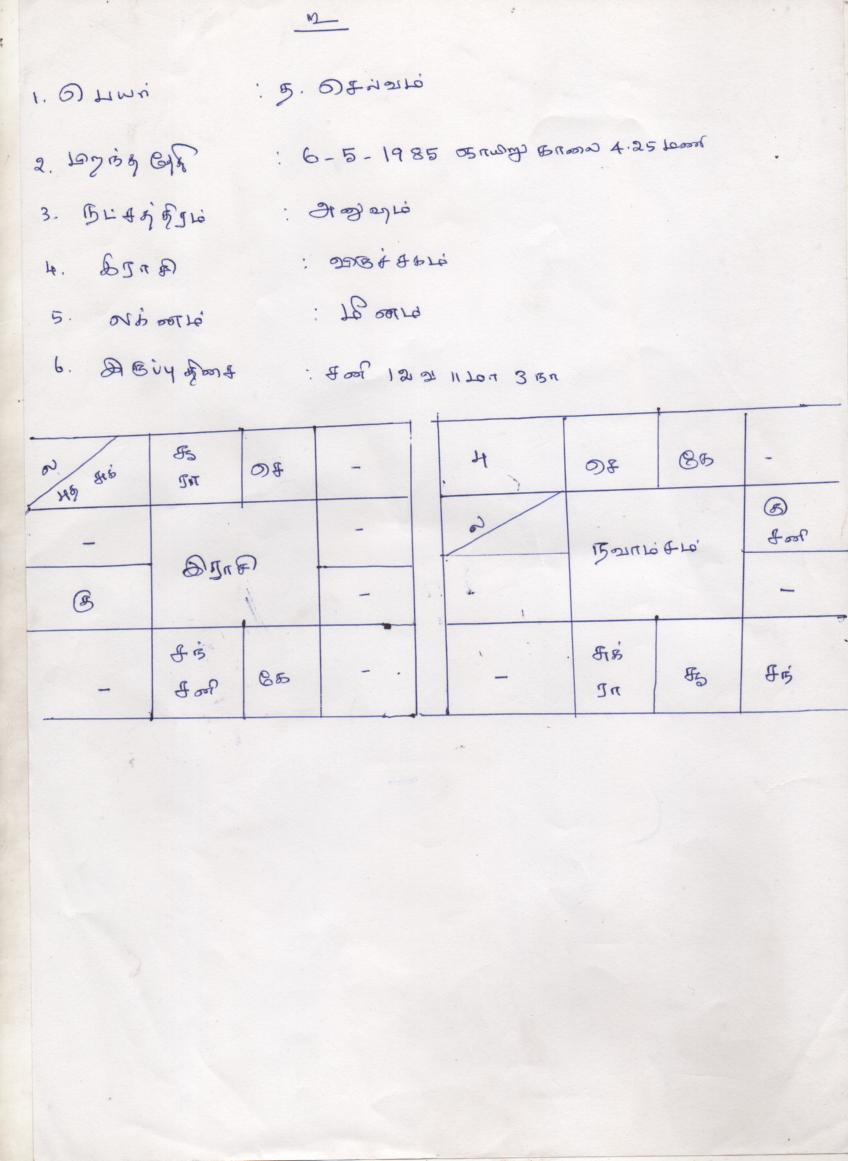 உ
1. பெயர் : த. செல்வம்
2. பிறந்த தேதி : 6-5-1985 ஞாயிறு காலை 4.25 மணி
3. நட்சத்திரம் : அனுஷம்
4. இராசி : விருச்சகம்
5. லக்னம் : மீனம்
6. இருப்பு திசை : சனி 12 வ 11 மா 3 நா
ல புத சுக் சூ ரா செ -
- -
கு இராசி -
- சந் சனி கே -
பு செ கே -
ல நவாம்சம் கு சனி
- -
- சுக் ரா சூ சந்